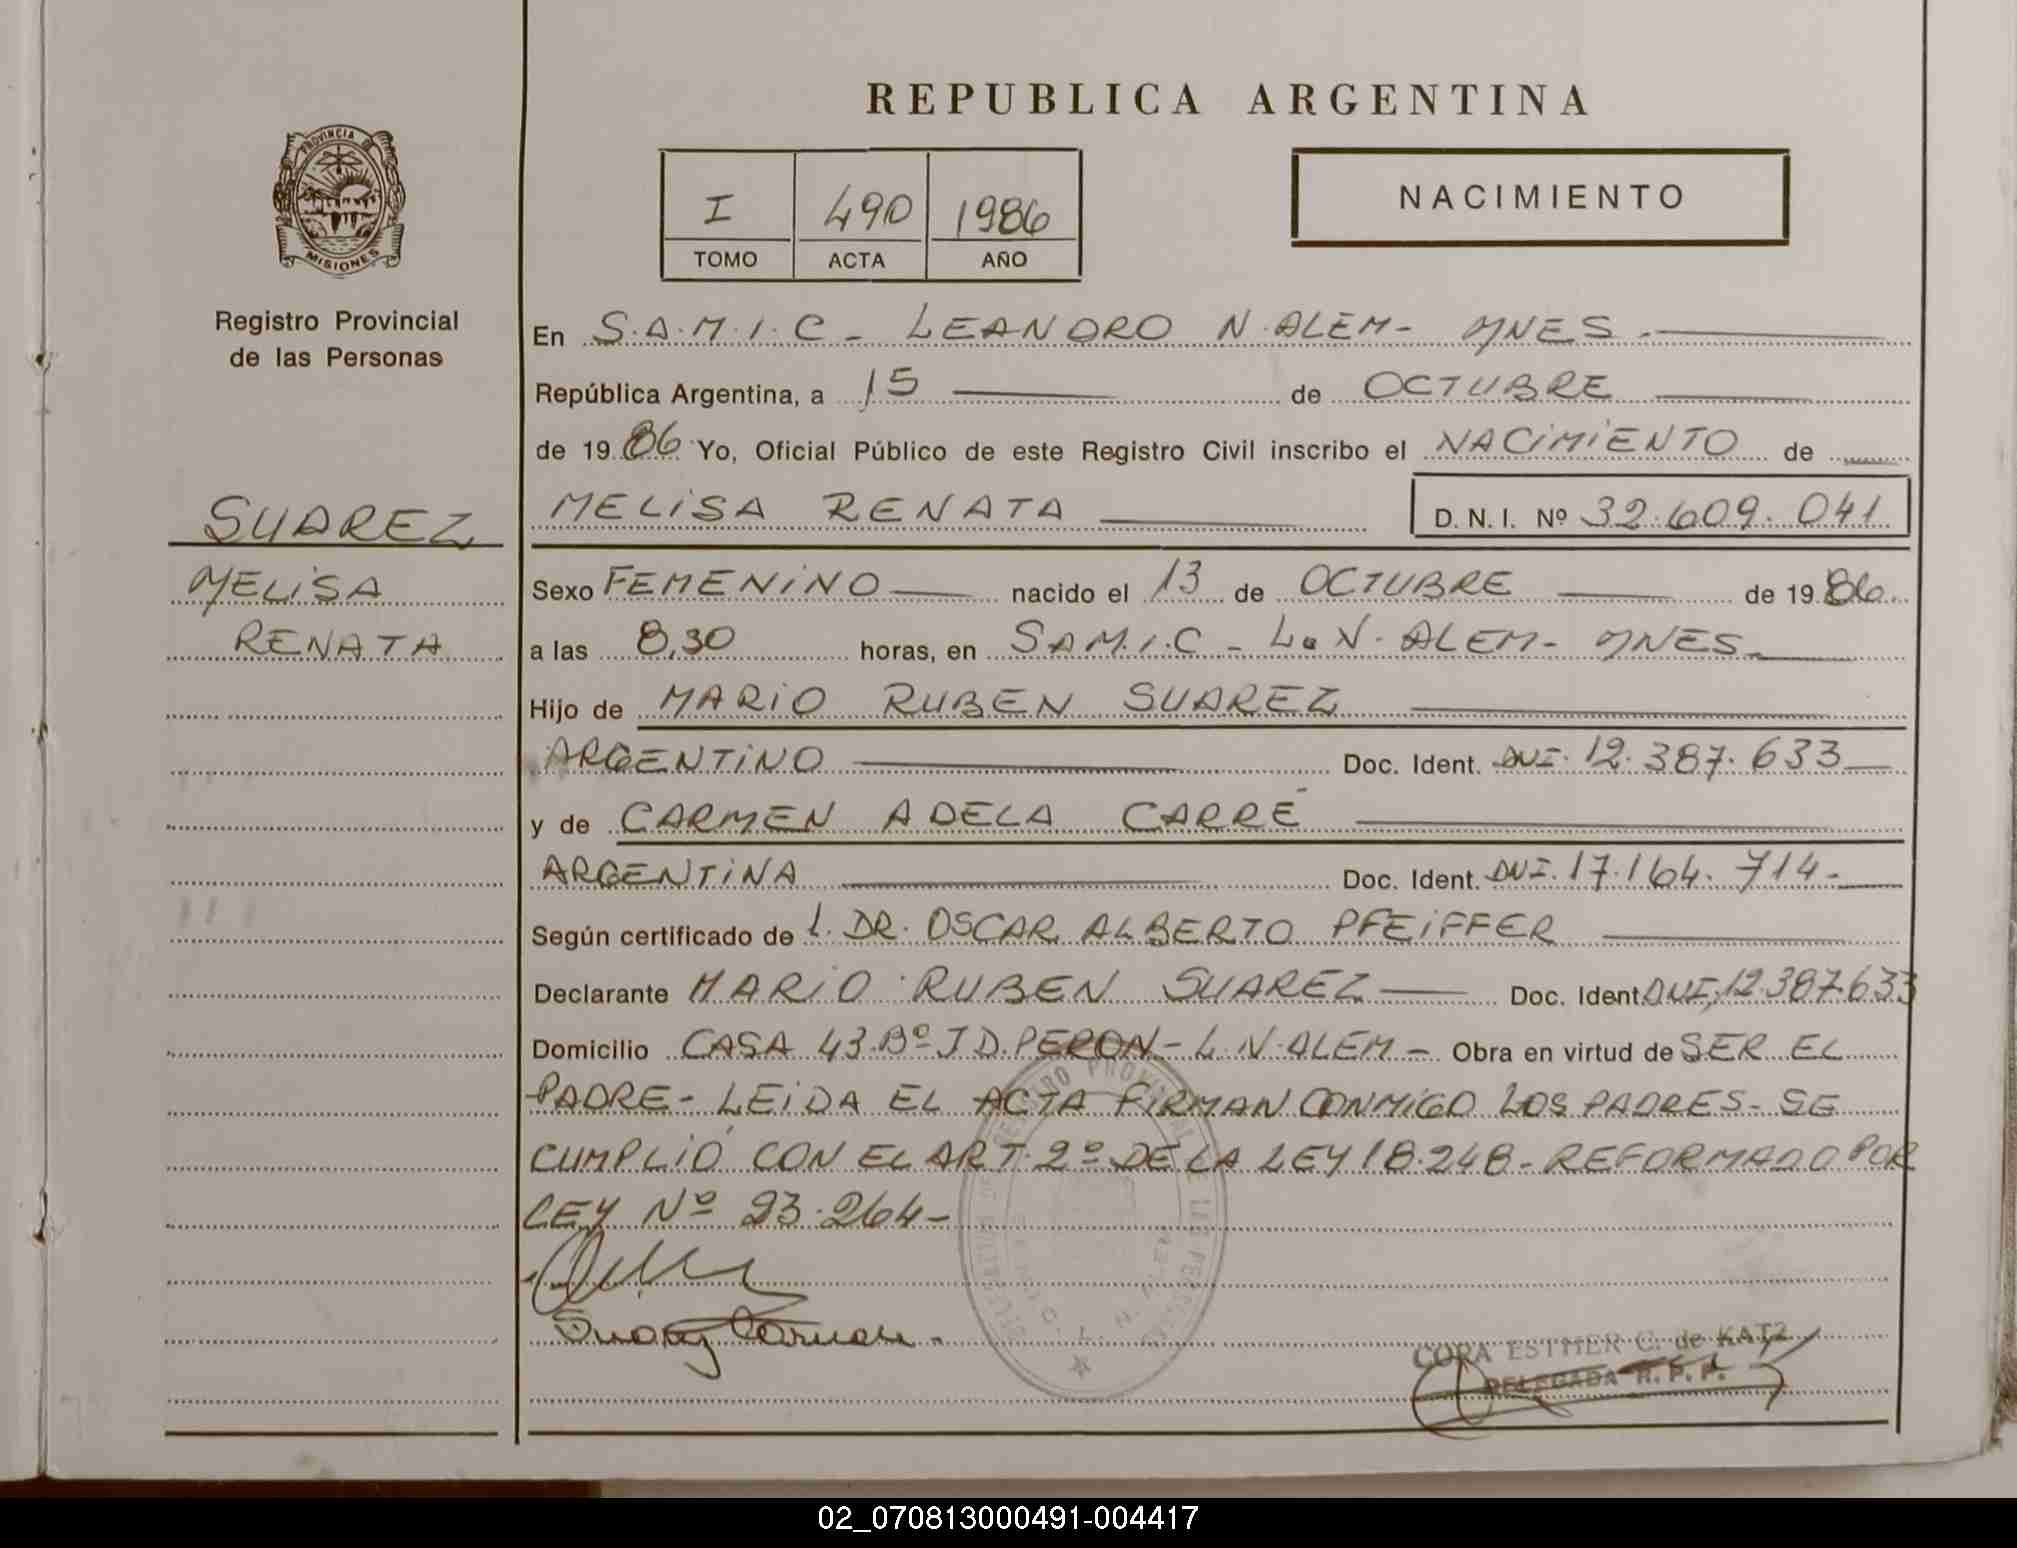 REPUBLICA ARGENTINA
PROVINCIA
MISIONES
Registro Provincial
de las Personas
I 490 1986
TOMO ACTA AÑO
NACIMIENTO
En S.A.M.I.C - LEANDRO N. ALEM - MNES.
República Argentina, a 15 de OCTUBRE
de 1986 Yo, Oficial Público de este Registro Civil inscribo el NACIMIENTO de
MELISA RENATA D. N. I. Nº 32.609.041
SUAREZ
MELISA
RENATA
Sexo FEMENINO nacido el 13 de OCTUBRE de 1986.
a las 8,30 horas, en SAM.I.C - L.N. ALEM - MNES.
Hijo de MARIO RUBEN SUAREZ
ARGENTINO Doc. Ident. DNI. 12.387.633
y de CARMEN ADELA CARRÉ
ARGENTINA Doc. Ident. DNI. 17.164.714.
Según certificado de L. DR. OSCAR ALBERTO PFEIFFER
Declarante MARIO RUBEN SUAREZ Doc. Ident. DNI. 12.387.633
Domicilio CASA 43.Bº J D. PERON - L.N. ALEM - Obra en virtud de SER EL
PADRE - LEIDA EL ACTA FIRMAN CONMIGO LOS PADRES - SE
CUMPLIÓ CON EL ART. 2º DE LA LEY 18.248 - REFORMADO POR
LEY Nº 23.264 -
Suarez Carmen.
CORA ESTHER C. de KATZ
DELEGADA R. P. P.
02_070813000491-004417